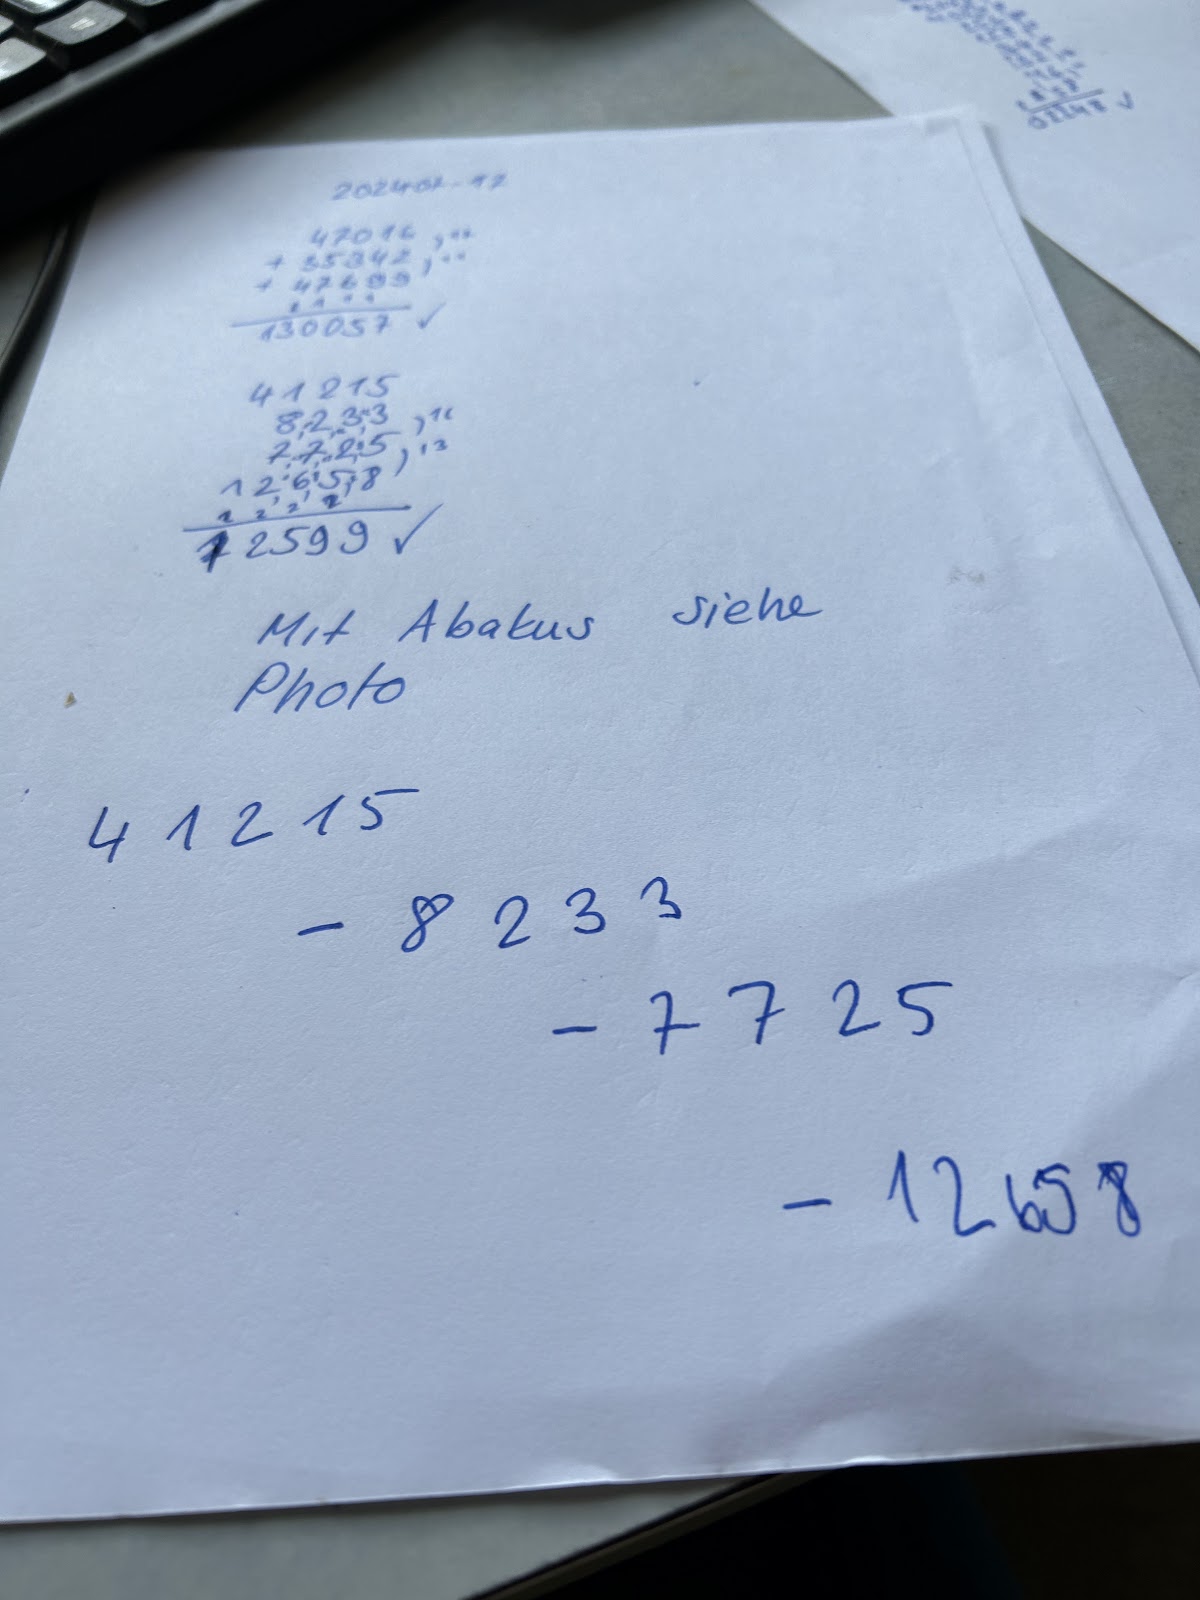 202407-12
47016
+ 35342
+ 47699
130057 ✓
41215
8233
7725
12658
1 2 2 2
12599 ✓
Mit Abakus siehe
Photo
41215
- 8233
- 7725
- 12658